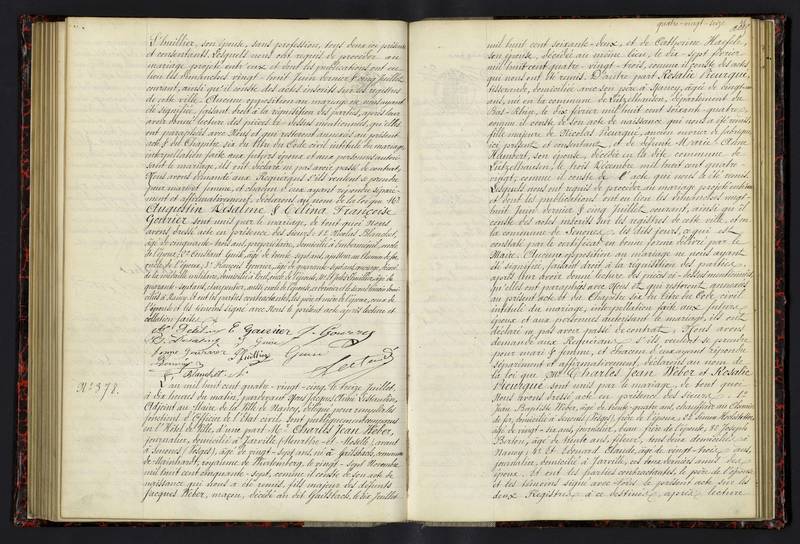 L'huillier, son épouse, sans profession, tous deux ici présents
et consentants. Lesquels nous ont requis de procéder au
mariage projeté entre eux et dont les publications ont eu
lieu les dimanches vingt-huit Juin dernier & cinq Juillet
courant, ainsi qu'il conste des actes inscrits sur les registres
de cette ville. Aucune opposition au mariage ne nous ayant
été signifiée, faisant droit à la réquisition des parties, après leur
avoir donné lecture des pièces ci-dessus mentionnées, qu'elles
ont paraphées avec Nous et qui resteront annexées au présent
acte, & du Chapitre six du titre du Code civil intitulé du mariage,
interpellation faite aux futurs époux et aux personnes autori-
sant le mariage, ils ont déclaré ne pas avoir passé de contrat,
Nous avons demandé aux Requérants s'ils veulent se prendre
pour mari et femme, et chacun d'eux ayant répondu séparé-
ment et affirmativement, déclarons au nom de la loi que Mr
Augustin Rosaline & Célina Françoise
Gouvier sont unis par le mariage, de tout quoi Nous
avons dressé acte en présence des sieurs: 1º Nicolas Blanchet,
âgé de cinquante-trois ans, propriétaire, domicilié à
de l'épouse, 2º Constant Guid, âgé de trente-sept ans,
de l'épouse, 3º
quarante-sept ans, charpentier,
ciliés à Nancy. Et ont les parties contractantes, les père et mère de l'époux, ceux de
l'épouse et les témoins signé avec Nous le présent acte après lecture et
collation faites.
Nº 378.
L'an mil huit cent quatre-vingt-cinq, le treize Juillet,
à dix heures du matin, pardevant Nous Jacques
Adjoint au Maire de la Ville de Nancy, délégué pour remplir les
fonctions d'Officier de l'Etat civil, sont publiquement comparus
en l'Hôtel de Ville, d'une part Mr Charles Jean Weber,
journalier, domicilié à Jarville (Meurthe-et-Moselle), avant
à Senones (Vosges), âgé de vingt-sept ans, né à Gailsbach, commune
de Mainhardt, royaume de Wurtemberg, le vingt-sept Novembre
mil huit cent cinquante-sept, comme il conste de son acte de
naissance qui nous a été remis, fils majeur des défunts
Jacques Weber, maçon, décédé au dit Gailsbach, le dix Juillet
quatre-vingt-seize
mil huit cent soixante-deux, et de Catherine
son épouse, décédée au même lieu, le dix-sept février
mil huit cent quatre-vingt-trois, comme il conste des actes
qui nous ont été remis. D'autre part Rosalie Pieurgué,
tisserande, domiciliée avec son père à Nancy, âgée de vingt-un
ans, née en la commune de Lützelhausen, département du
Bas-Rhin, le dix février mil huit cent soixante-quatre,
comme il conste de son acte de naissance, qui nous a été remis,
fille majeure de Nicolas Pieurgué, ancien ouvrier de fabrique,
ici présent et consentant, et de défunte Marie Anne
Humbert, son épouse, décédée en la dite commune de
Lützelhausen, le trois Décembre mil huit cent quatre-
vingt, comme il conste de l'acte qui nous a été remis.
Lesquels nous ont requis de procéder au mariage projeté entre eux
et dont les publications ont eu lieu les dimanches vingt-
huit Juin dernier & cinq Juillet courant, ainsi qu'il
conste des actes inscrits sur les registres de cette ville, et en
la commune de Senones, les dits jours, ce qui est
constaté par le certificat en bonne forme délivré par le
Maire. Aucune opposition au mariage ne nous ayant
été signifiée, faisant droit à la réquisition des parties,
après leur avoir donné lecture des pièces ci-dessus mentionnées,
qu'elles ont paraphées avec Nous et qui resteront annexées
au présent acte et du Chapitre six du titre du Code civil
intitulé du mariage, interpellation faite aux futurs
époux et aux personnes autorisant le mariage, ils ont
déclaré ne pas avoir passé de contrat, Nous avons
demandé aux Requérants s'ils veulent se prendre
pour mari & femme, et chacun d'eux ayant répondu
séparément et affirmativement, déclarons au nom de
la loi que Mr Charles Jean Weber et Rosalie
Pieurgué sont unis par le mariage, de tout quoi
Nous avons dressé acte en présence des sieurs: 1º
Jean Baptiste Weber, âgé de vingt-quatre ans, chauffeur au Chemin
de fer, domicilié à Senones (Vosges), frère de l'époux, 2º Simon
âgé de vingt-six ans, journalier, beau-frère de l'épouse, 3º Joseph
Barlier, âgé de trente ans, fileur, tous deux domiciliés à
Nancy; 4º et Edouard Claude, âgé de vingt-trois ans,
journalier, domicilié à Jarville, ces deux derniers amis des
époux. Et ont les parties contractantes, le père de l'épouse
et les témoins signé avec Nous le présent acte sur les
deux Registres à ce destinés, après lecture